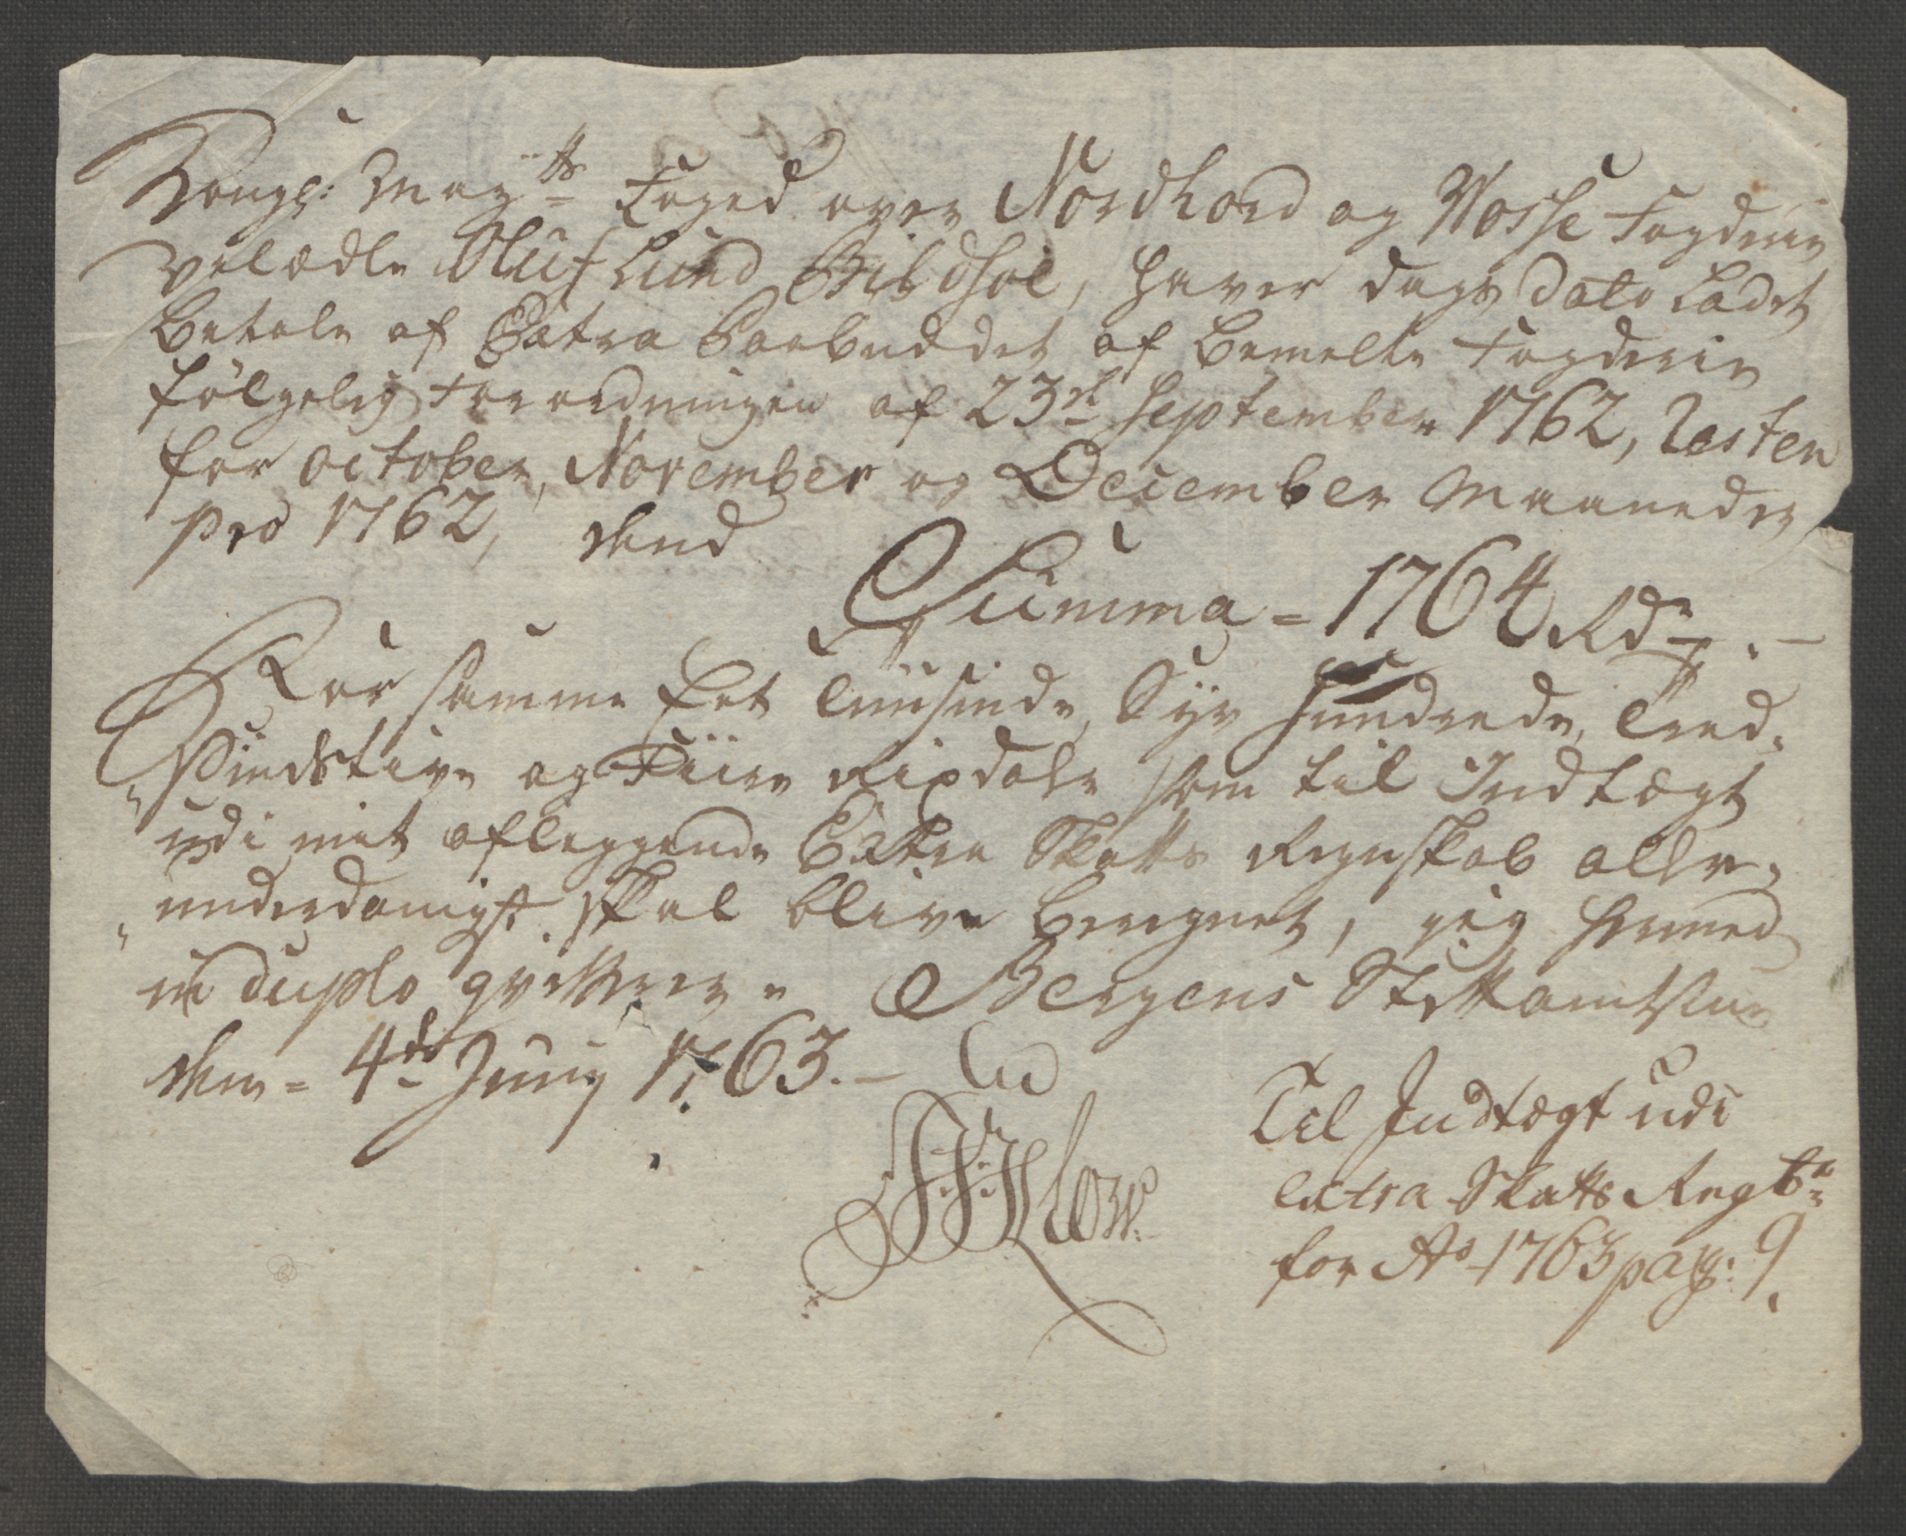 Kongl: May^tts Foged over Nordhord og Vosse Fogderie
Velædle Oluf Lund Bildsøe, haver dags dato ladet
betale af Extra Paabuddet af bemelte Fogderie
følgelig Forordningen af 23^de September 1762, Resten
for october, November og December Maaneder
pro 1762, med
Summa = 1764 Rd^r -.-
For samme Eet Tuusinde, Syv Hundrede, Tred-
sindstive og Fiire Rixdaler som til Indtægt
udi mit aflæggende Extra Skatts Regnskab aller-
underdanigst skal blive beregnet, jeg hermed
in duplo qvitterer. Bergens Stiftamtstue
den = 4^de Juny 1763.-
Til Indtægt udi
Extra Skatts Regsk^b
for A^o 1763 pag: 9.